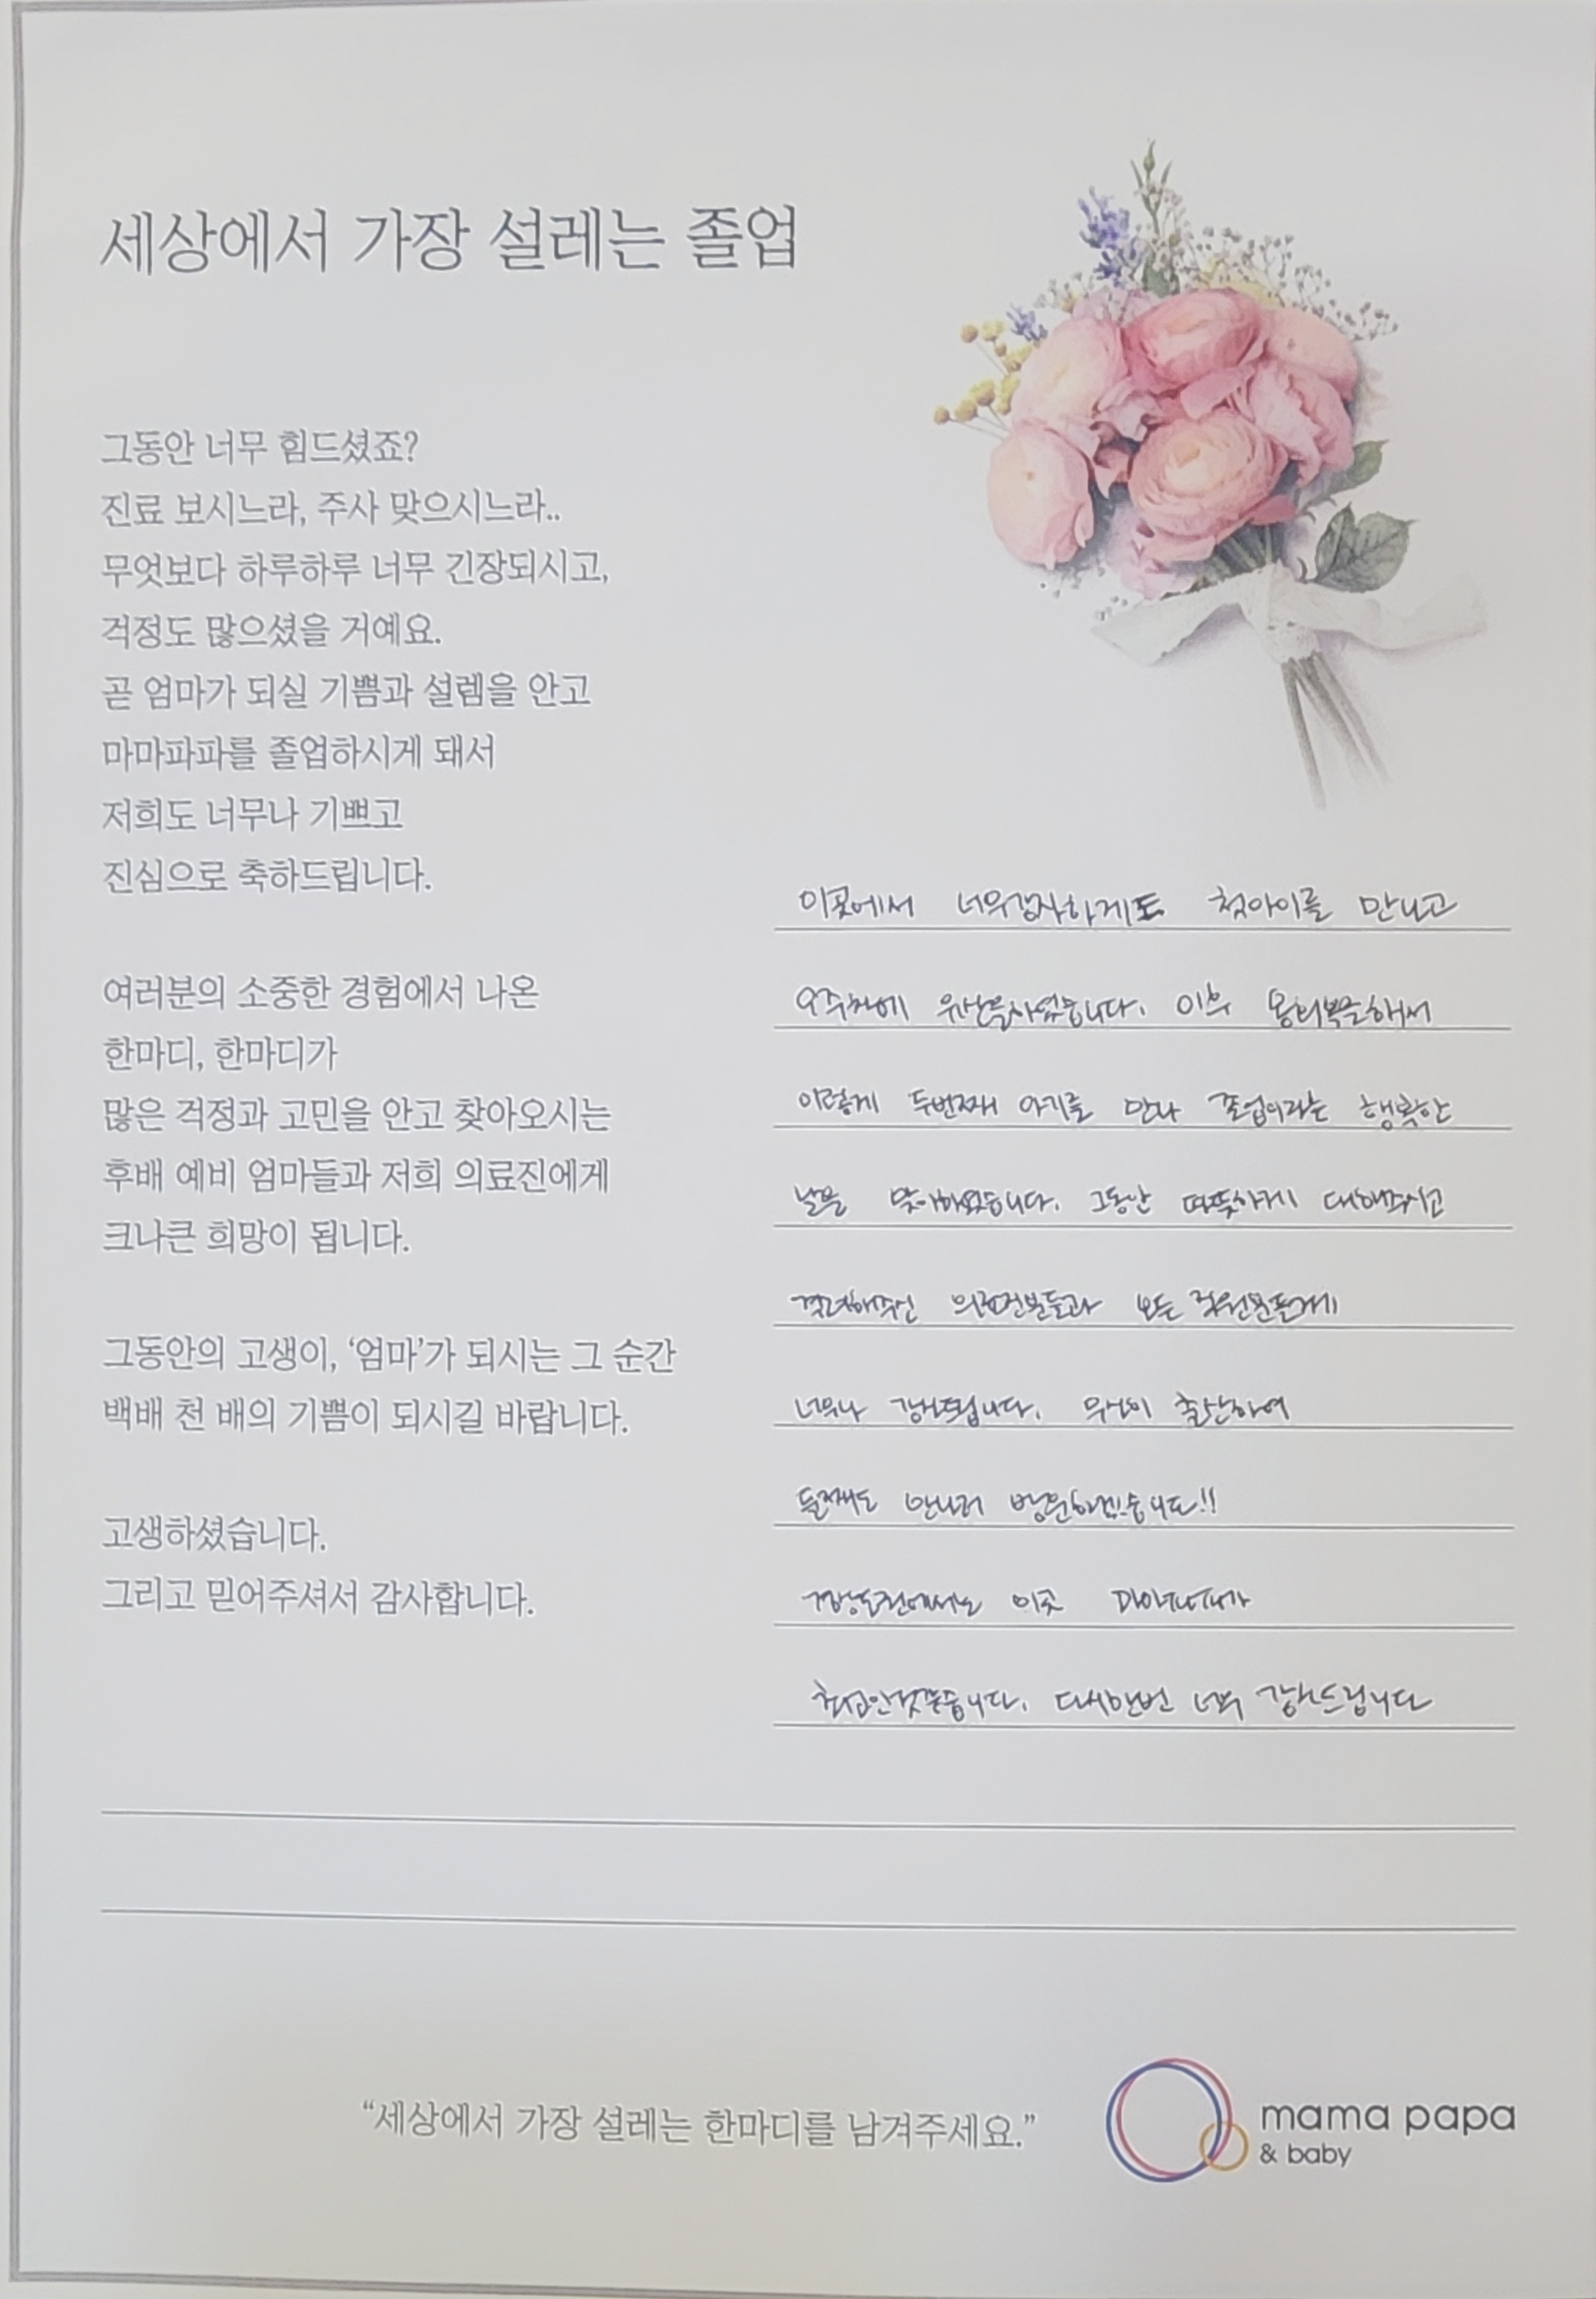 세상에서 가장 설레는 졸업
그동안 너무 힘드셨죠?
진료 보시느라, 주사 맞으시느라..
무엇보다 하루하루 너무 긴장되시고,
걱정도 많으셨을 거예요.
곧 엄마가 되실 기쁨과 설렘을 안고
마마파파를 졸업하시게 돼서
저희도 너무나 기쁘고
진심으로 축하드립니다.
여러분의 소중한 경험에서 나온
한마디, 한마디가
많은 걱정과 고민을 안고 찾아오시는
후배 예비 엄마들과 저희 의료진에게
크나큰 희망이 됩니다.
그동안의 고생이, ‘엄마’가 되시는 그 순간
백배 천 배의 기쁨이 되시길 바랍니다.
고생하셨습니다.
그리고 믿어주셔서 감사합니다.
이곳에서 너무감사하게도 첫아이를 만나고
9주차에 유산을하였습니다. 이후 몸회복을해서
이렇게 두번째 아기를 만나 졸업이라는 행복한
날을 맞이하였습니다. 그동안 따뜻하게 대해주시고
격려해주신 의료진분들과 모든 직원분들께
너무나 감사드립니다. 무사히 출산하여
둘째도 만나러 방문하겠습니다!!
이곳
최고인것같습니다. 다시한번 너무 감사드립니다
“세상에서 가장 설레는 한마디를 남겨주세요.”
mama papa
& baby